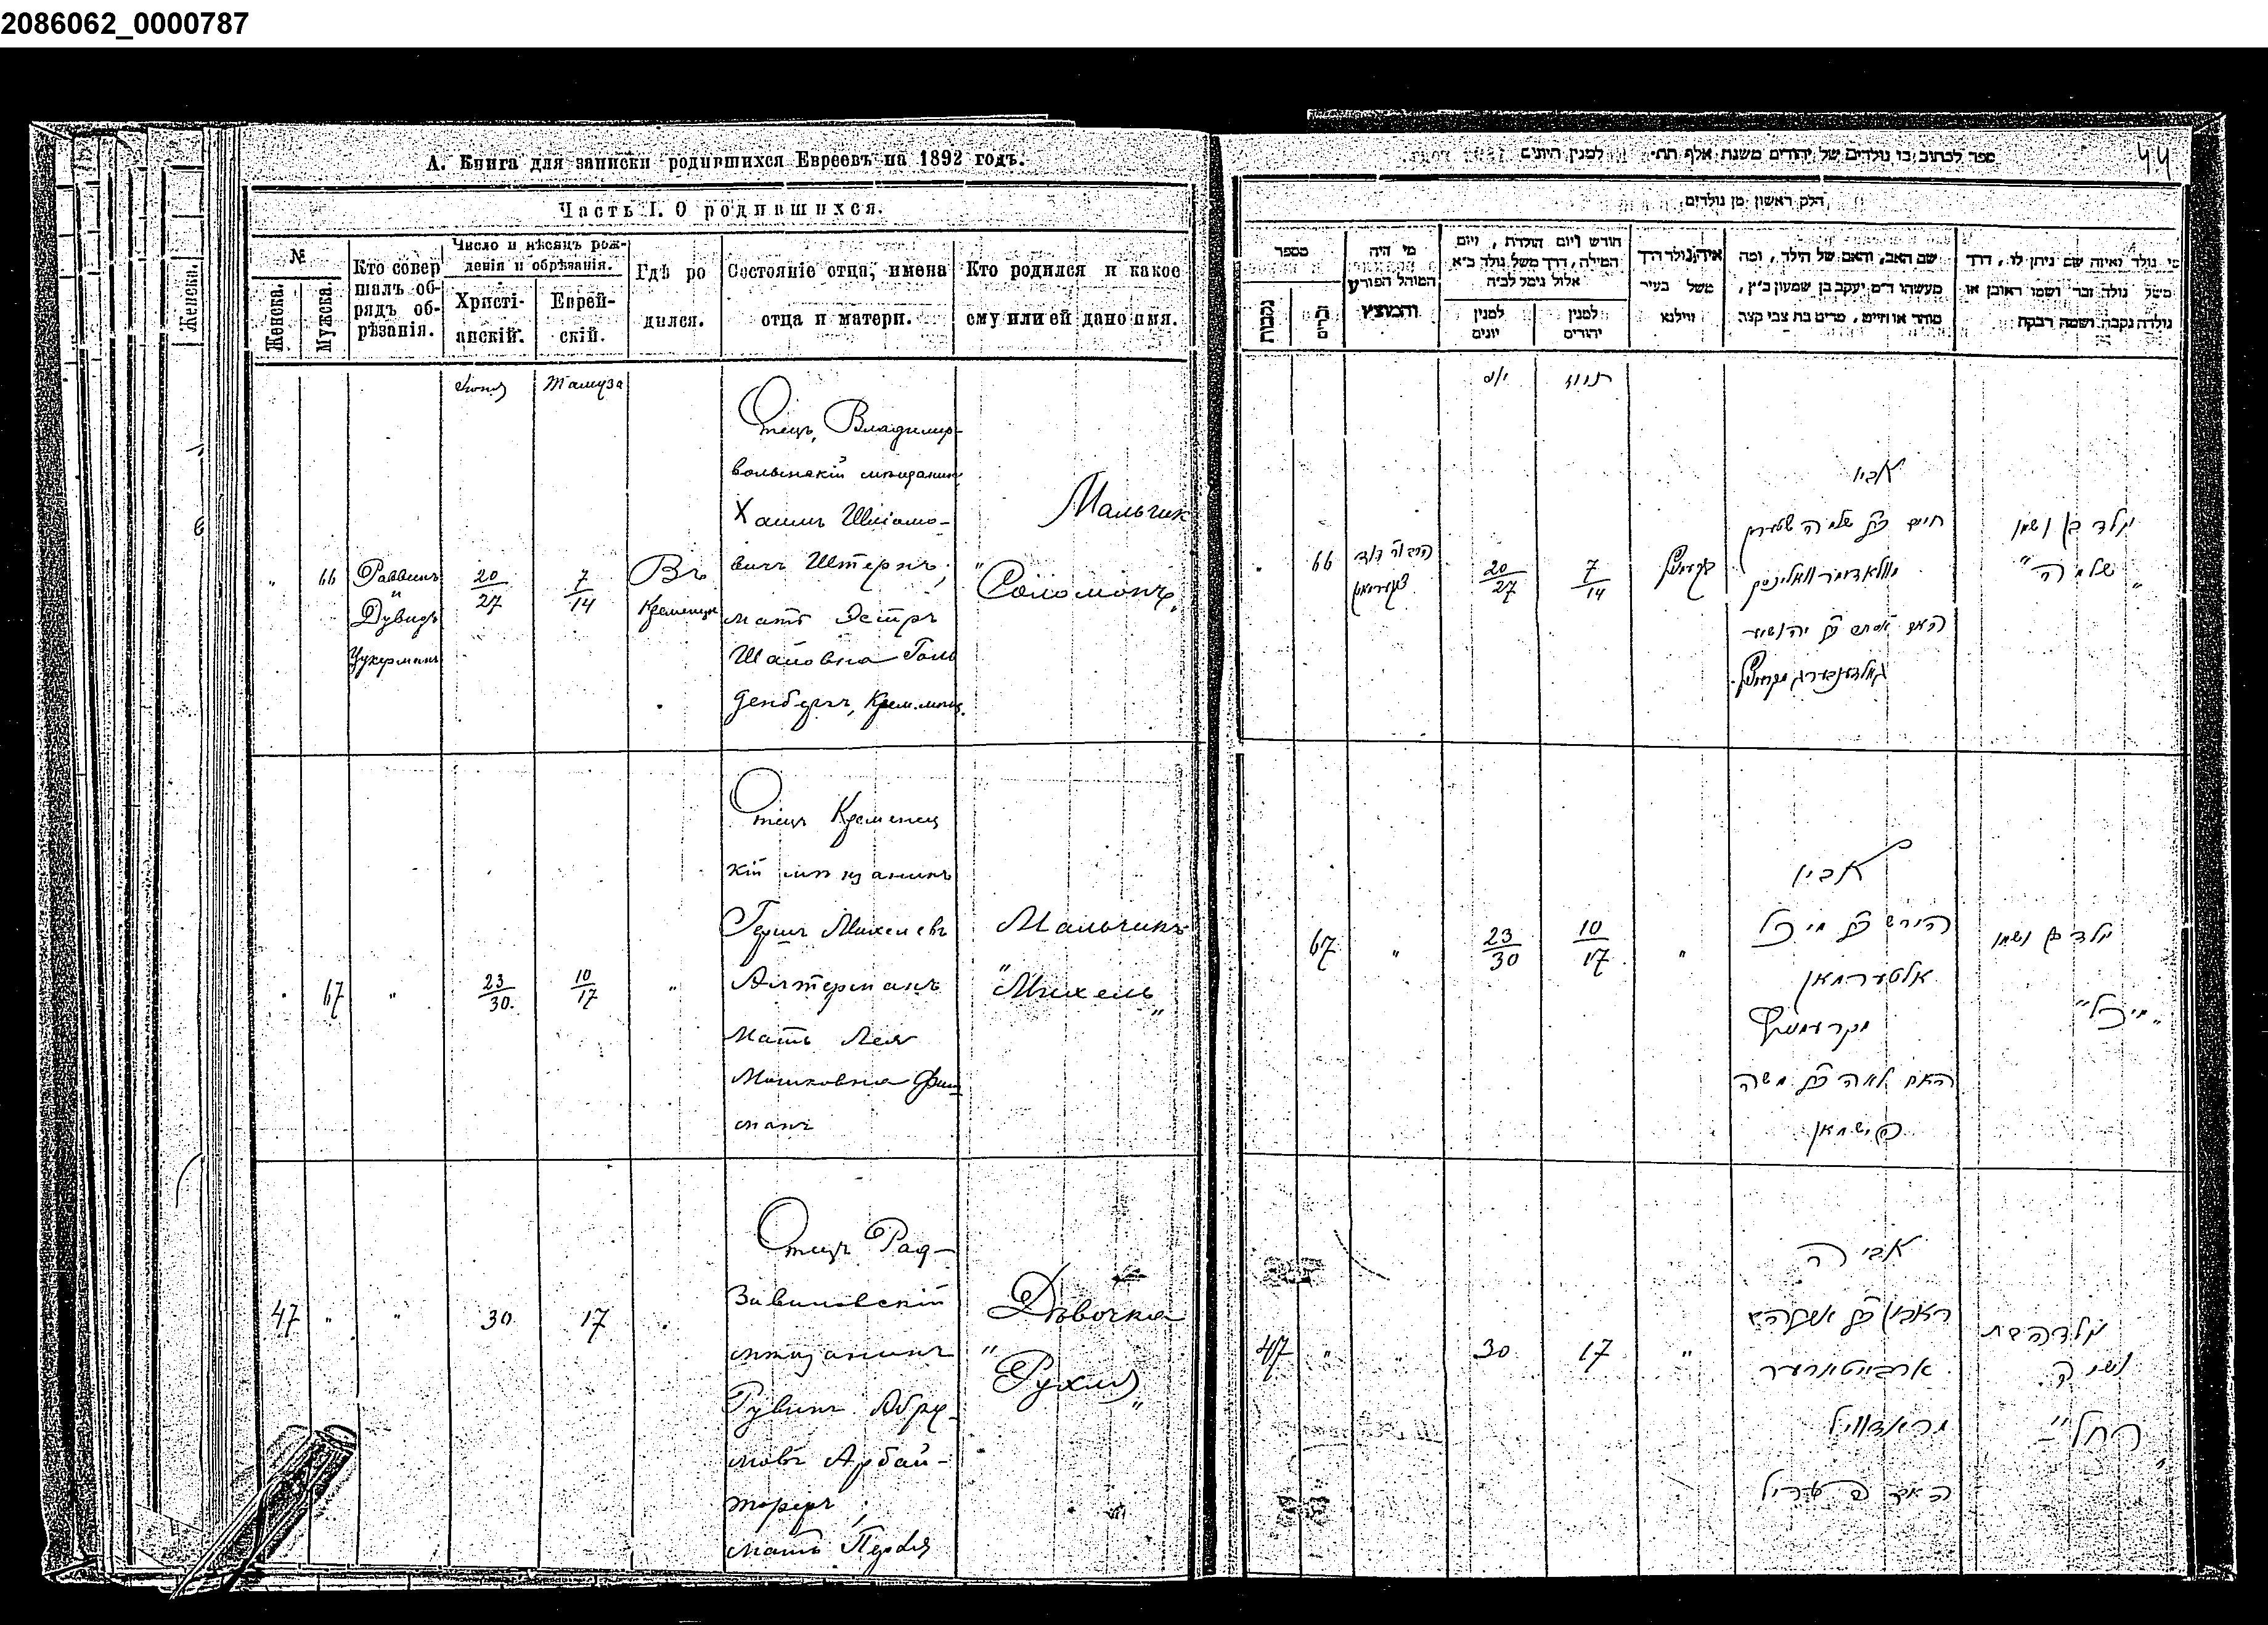 2086062_0000787
А. Книга для записки родившихся Евреевъ на 1892 годъ.
Часть I. О родившихся.
№
Женска.
Мужска.
Кто совер
шалъ об-
рядъ об-
рѣзанія.
Число и мѣсяцъ рож-
денія и обрѣзанія.
Христі-
анскій.
Еврей-
скій.
Гдѣ ро
дился.
Состояніе отца, имена
отца и матери.
Кто родился и какое
ему или ей дано имя.
Іюня
Тамуза
" 66
Раввинъ
и
Дувидъ
Цукерманъ
20
27
7
14
Въ
Кременцѣ
Отецъ, Владимир-
волынскій мѣщанинъ
Хаимъ Шліомо-
вичъ Штернъ;
мать Эстръ
Шаповна Голь
денбергъ, Крем. мѣщ.
Мальчик
"Соломонъ"
67
"
23
30.
10
17
"
Отецъ Кременец
кій мѣщанинъ
Гершъ Михелевъ
Алтерманъ
Мать Лея
Мошковна Фиш
манъ
Мальчикъ
"Михель"
47 " "
30
17
Отецъ Рад-
зивиловскій
мѣщанинъ
Рувинъ Абра-
мовъ Арбай-
тореръ;
мать Перля
Дѣвочка
"Рухля"
ספר לכתוב בו נולדים של יהודים משנת אלף תת״ למנין היונים
44
חלק ראשון מן נולדים
מספר
נקבות
זכרים
מי היה
המוהל הפורע
והמוצץ
חורש ויום הולדת, ויום
המילה, דרך משל נולד כ״א
אלול נימל לכ״ח
למנין
יונים
למנין
יהודים
איה נולד דרך
משל בעיר
ווילנא
שם האב, והאם של הילד, ומה
מעשהו ד״מ יעקב בן שמעון כ״ץ,
סוחר או חייט, מרים בת צבי קצב
מי נולד ואיזה שם ניתן לו, דרך
משל נולד זכר ושמו ראובן או
נולדה נקבה ושמה רבקה
תמוז
66
20
27
7
14
אביו
חיים בן שלמה שטערן
וולאדימיר וואלינסק
ילד בן ושמו
"שלמה"
67
"
23
30
10
17
"
אביו
הירש בן מיכל
אלטערמאן
מקרעמעניץ
האם לאה בת משה
פישמאן
ילד בן ושמו
"מיכל"
47 " "
30
17
"
אביה
ראובן בן אברהם
ארבייטארער
מראדזוויל
האם פעריל
ילדה בת
ושמה
"רחל"